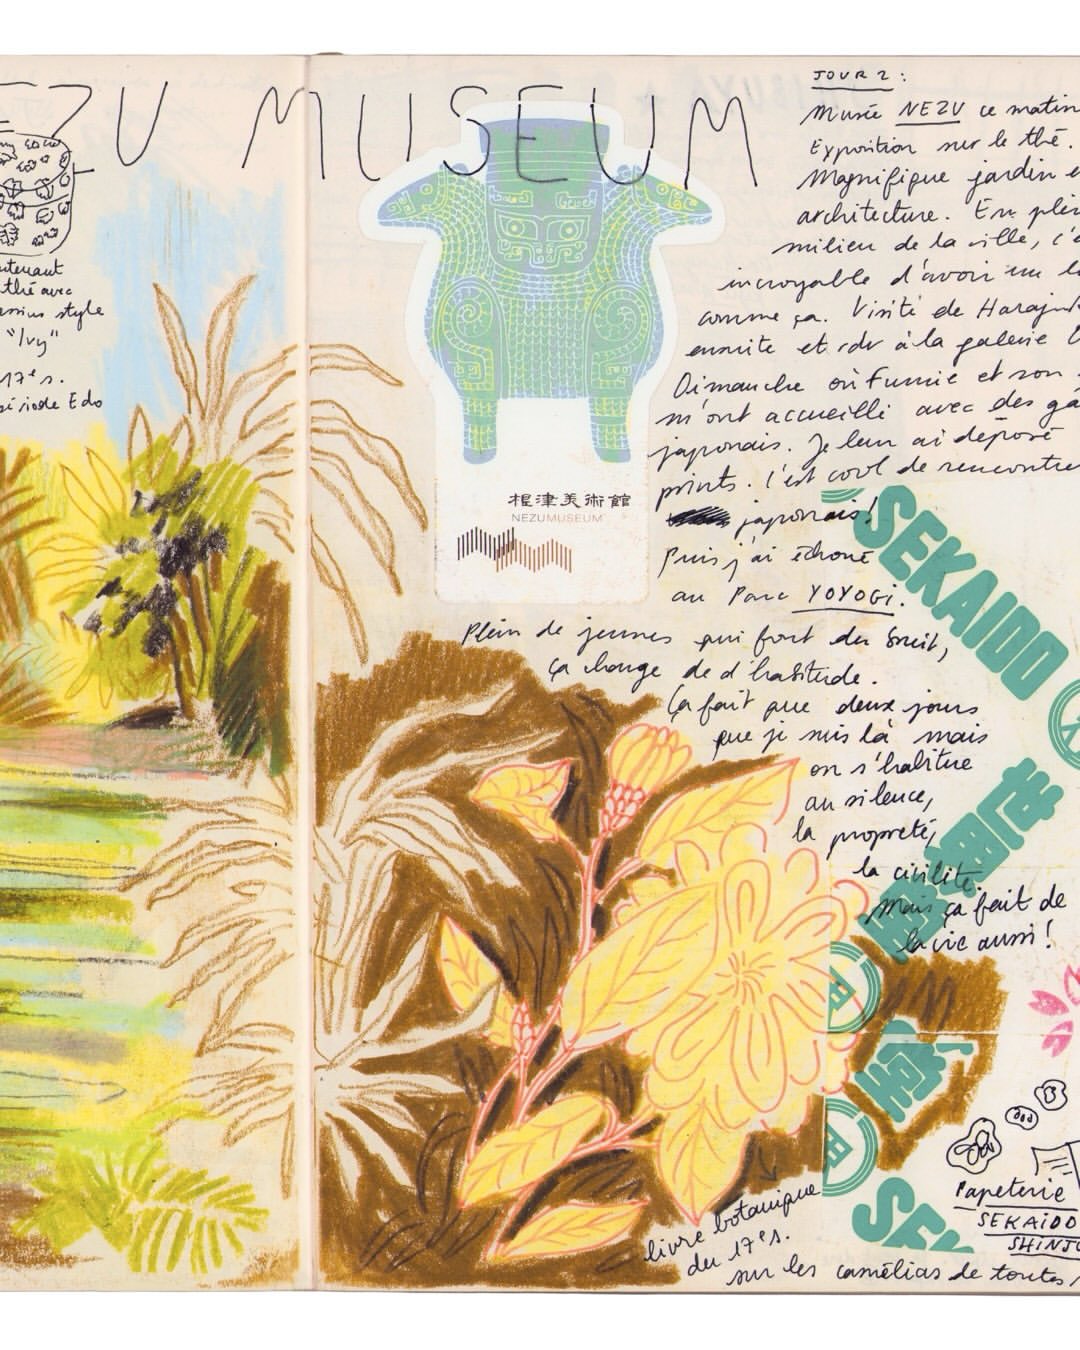 EZU MUSEUM
thé avec
style
"Ivy"
17e s.
période Edo
根津美術館
NEZUMUSEUM
JOUR 2 :
Musée NEZU ce matin
Exposition sur le thé.
Magnifique jardin e
architecture. En plei
milieu de la ville, c'e
incroyable d'avoir un l
comme ça. Visite de Haraju
ensuite et rdv à la galerie
Dimanche où Fumie et son
m'ont accueilli avec des gâ
japonais. Je leur ai déposé
prints. C'est cool de rencontre
japonais !
Puis j'ai échoué
au Parc YOYOGI.
Plein de jeunes qui font du bruit,
ça change de d'habitude.
Ça fait que deux jours
que je suis là mais
on s'habitue
au silence,
la propreté,
la civilité.
Mais ça fait de
la vie aussi !
SEKAIDO
世界堂
SEK
Papeterie
SEKAIDO
SHINJU
livre botanique
du 17e s.
sur les camélias de toutes